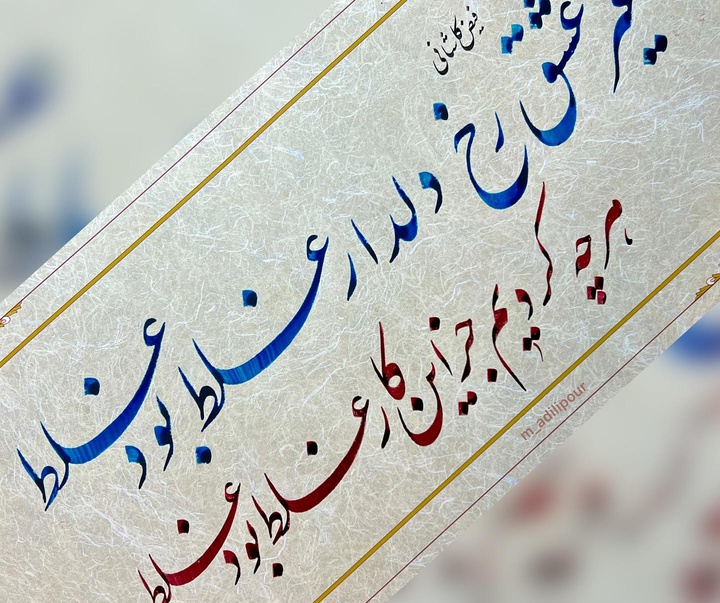 غیر عشق رخ دلدار غلط بود غلط
فیض کاشانی
هر چه کردیم جز این کار غلط بود غلط
m_adilipour